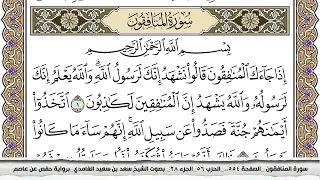 سُورَةُ المُنَافِقُونَ
بِسْمِ اللَّهِ الرَّحْمَٰنِ الرَّحِيمِ
إِذَا جَاءَكَ الْمُنَافِقُونَ قَالُوا نَشْهَدُ إِنَّكَ لَرَسُولُ اللَّهِ وَاللَّهُ يَعْلَمُ إِنَّكَ
لَرَسُولُهُ وَاللَّهُ يَشْهَدُ إِنَّ الْمُنَافِقِينَ لَكَاذِبُونَ ١ اتَّخَذُوا
أَيْمَانَهُمْ جُنَّةً فَصَدُّوا عَن سَبِيلِ اللَّهِ إِنَّهُمْ سَاءَ مَا كَانُوا
سورة المنافقون . الصفحة ٥٥٤ .. الحزب ٥٦ . الجزء ٢٨ . بصوت الشيخ سعد بن سعيد الغامدي . برواية حفص عن عاصم